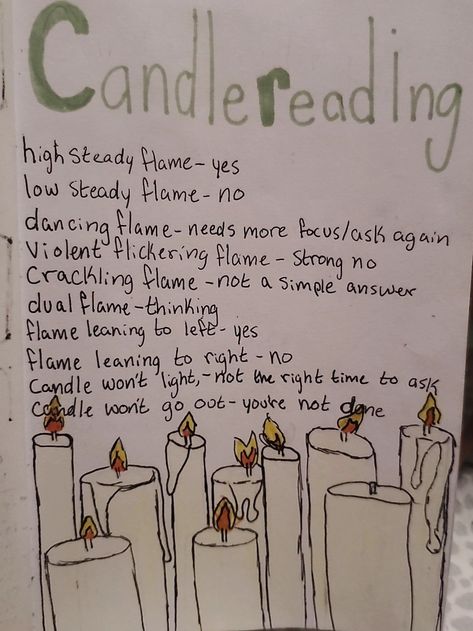 Candlereading
high steady flame - yes
low steady flame - no
dancing flame - needs more focus/ask again
Violent flickering flame - Strong no
Crackling flame - not a simple answer
dual flame - thinking
flame leaning to left - yes
flame leaning to right - no
Candle won't light, - not the right time to ask
candle won't go out - you're not done